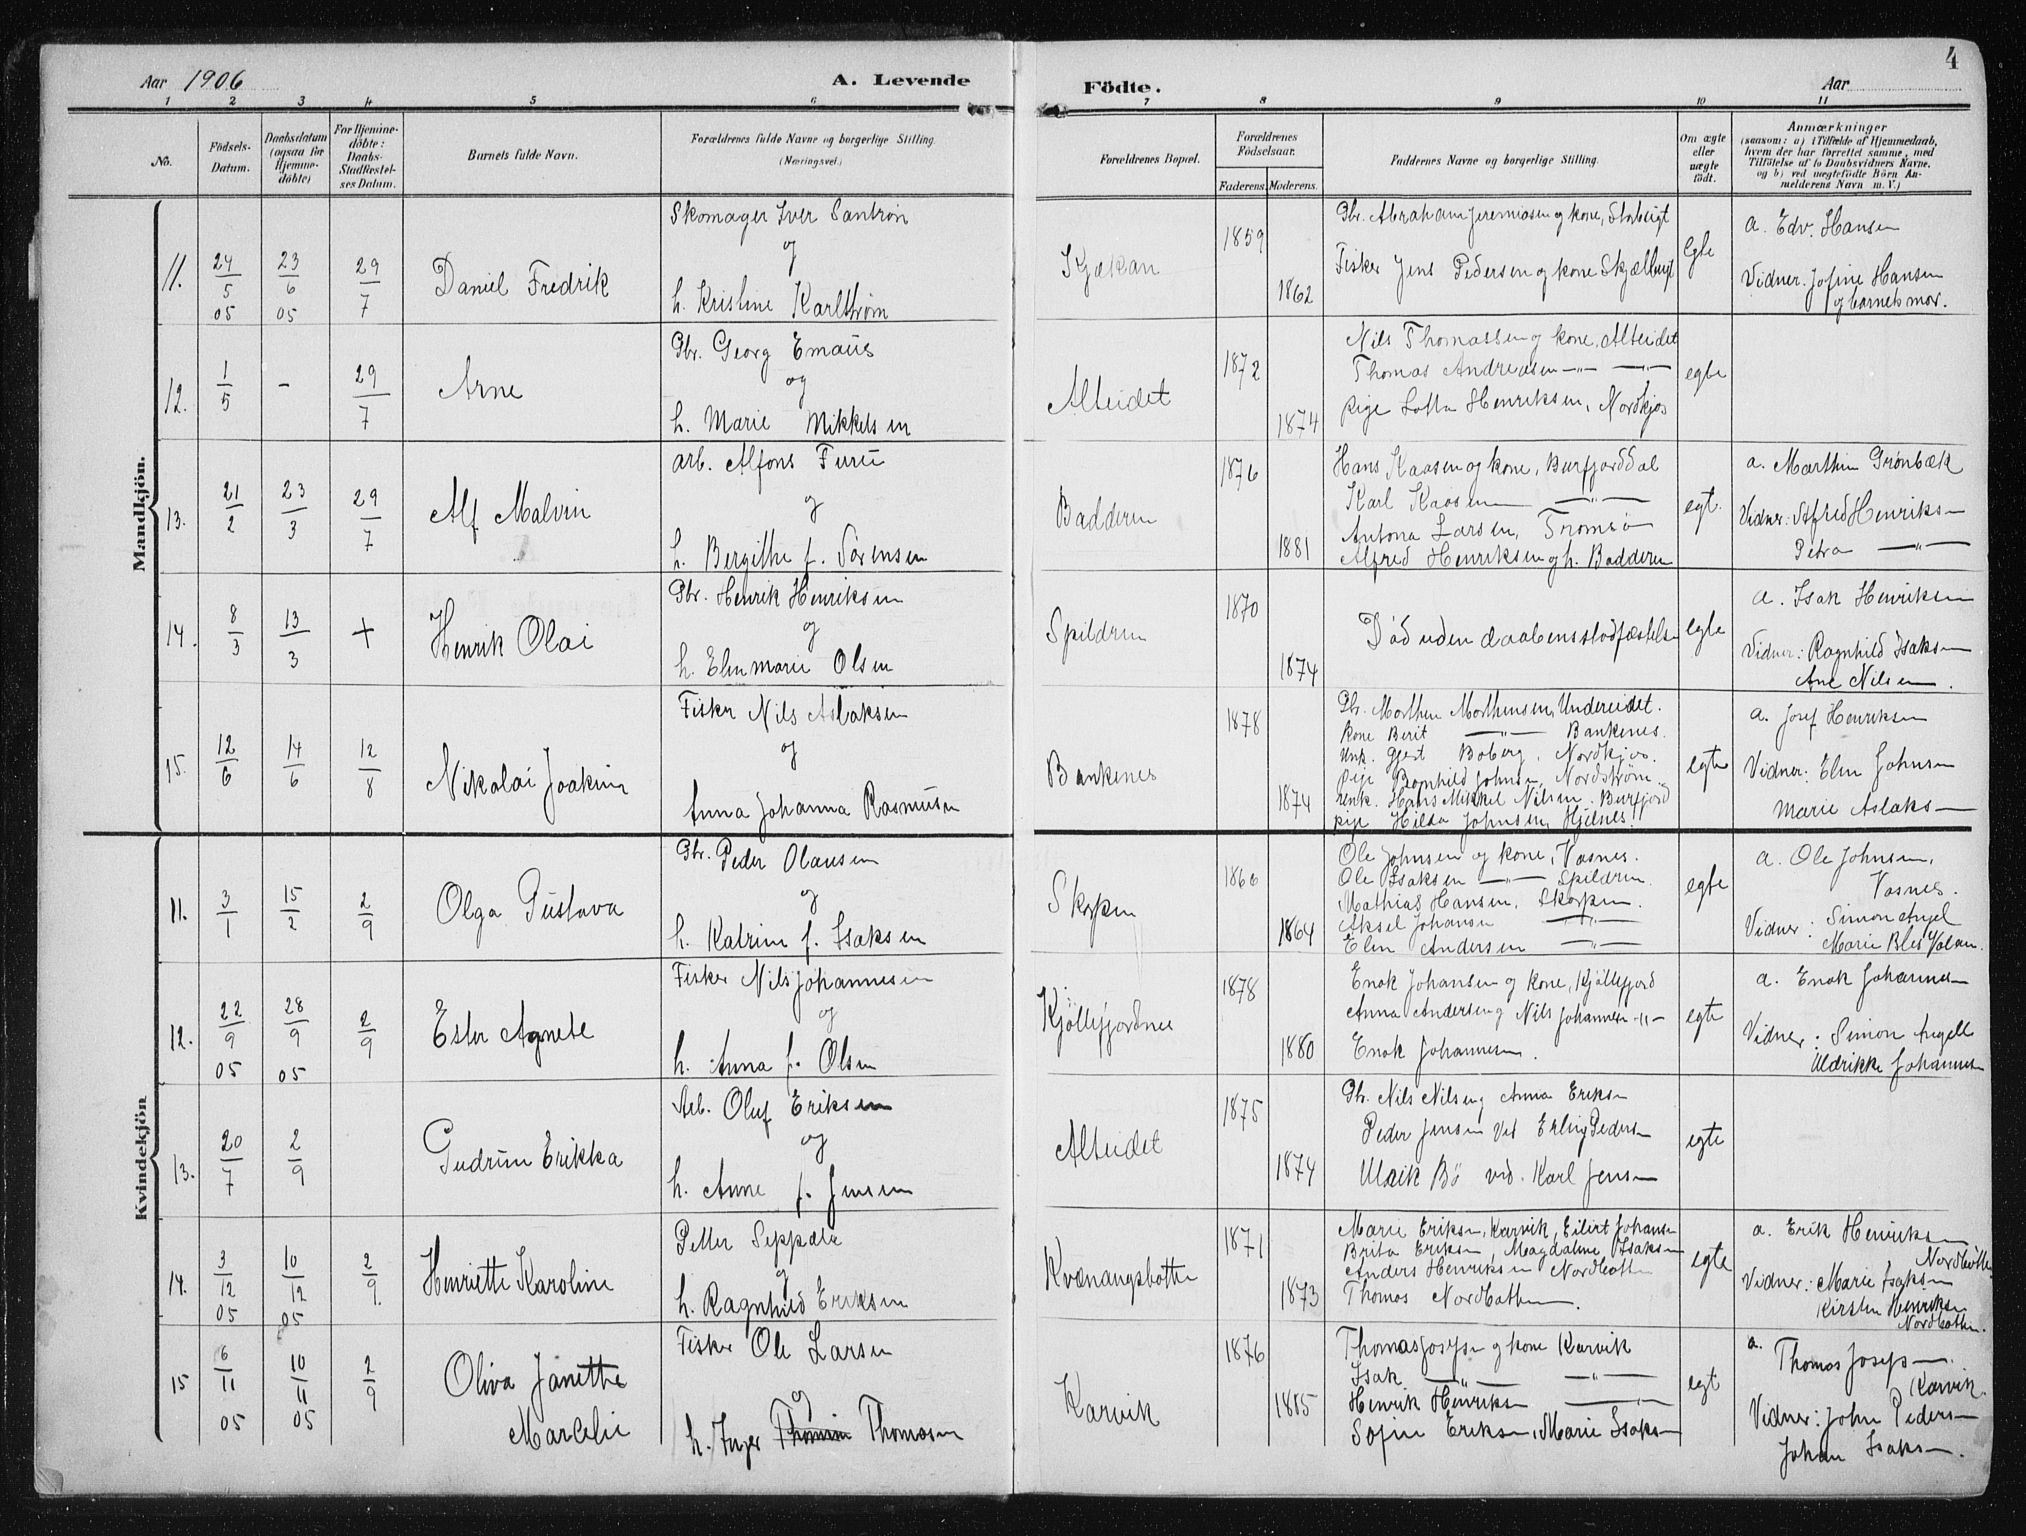 4
Aar 1906
A. Levende Födte.
Aar
1 2 3 4 5 6 7 8 9 10 11
No.
Födsels-Datum.
Daabsdatum (ogsaa for Hjemme-döbte)
For Hjemme-döbte: Daabs-Stadfæstel-ses Datum.
Barnets fulde Navn.
Forældrenes fulde Navne og borgerlige Stilling.
(Næringsvei.)
Forældrenes Bopæl.
Forældrenes Födselsaar.
Faderens. Moderens.
Faddernes Navne og borgerlige Stilling.
Om ægte eller uægte födt.
Anmærkninger
(saasom: a) i Tilfælde af Hjemmedaab, hvem der har forrettet samme, med Tilföielse af to Daabsvidners Navne, og b) ved uægtefödte Börn An-melderens Navn m. V.)
Mandkjön.
11. 24/5 05 23/6 05 29/7 Daniel Fredrik
Skomager Iver Santrön
og
h. Kristine Karlström
Kjækan 1859 1862
Gbr. Abraham Jeremiasen og kone, Storbugt
Fisker Jens Pedersen og kone Skjælbugt
Egte
a. Edv. Hansen
Vidner: Jofine Hansen
og barnets mor.
12. 1/5 - 29/7 Arne
Gbr. Georg Emaus
og
h. Marie Mikkelsen
Alteidet 1872 1874
Nils Thomassen og kone, Alteidet
Thomas Andreasen -"- -"-
Pige Lotta Henriksen, Nordkjos
egte
13. 21/2 23/3 29/7 Alf Malvin
Arb. Alfons Furu
og
h. Bergithe f. Sörensen
Badderen 1876 1881
Hans Kaasen og kone, Burfjorddal
Karl Kaasen -"-
Antona Larsen, Tromsö
Alfred Henriksen og h. Badderen
egt.
a. Marthin Grönbæk
Vidner: Alfred Henriksen
Petra -"-
14. 8/3 13/3 + Henrik Olai
Gbr. Henrik Henriksen
og
h. Elenmarie Olsen
Spildren 1870 1874
Död uden daabens stadfæstelse
egte
a. Isak Henriksen
Vidner: Ragnhild Isaksen
Ane Nilsen.
15. 12/6 14/6 12/8 Nikolai Joakim
Fisker Nils Aslaksen
og
Anna Johanna Rasmusen
Bankenes 1878 1874
Gbr. Morthen Morthensen, Undereidet.
Kone Berit -"- Bankenes.
Unk. Gjert Boberg, Nordkjos.
Pige Bornhild Johnsen, Nordström.
Unk. Hans Mikkel Nilsen. Burfjord
Pige Hilda Johnsen, Hjelnes.
egte
a. Josef Henriksen
Vidner: Elen Johnsen
Marie Aslaks-
Kvindekjön
11. 3/1 15/2 2/9 Olga Gustava
Gbr. Peder Olausen
og
h. Katrine f. Isaksen
Skorpen 1866 1864
Ole Johnsen og kone, Vasnes.
Ole Isaksen -"- Spildren.
Mathias Hansen, Skorpen.
Aksel Johansen -"-
Elen Andersen -"-
egte
a. Ole Johnsen,
Vasnes.
Vidner: Simon Angel
Marie
12. 22/9 05 28/9 05 2/9 Ester Agnete
Fisker Nils Johannesen
og
h. Anna f. Olsen
Kjöllefjordnes 1878 1880
Enok Johansen og kone, Kjöllefjord
Anna Andersen og Nils Johannesen -"-
Enok Johannesen.
egte
a. Enok Johannesen
Vidner: Simon Angell
Uldrikke Johannesen
13. 20/7 2/9 Gudrun Erikka
Arb. Oluf Eriksen
og
h. Anne f. Jensen
Alteidet 1875 1874
Gbr. Nils Nilsen og Anna Eriksen
Peder Jensen Vet Erling Pedersen
Ulrik Bö vid. Karl Jensen
egte
14. 3/12 05 10/12 05 2/9. Henriette Karoline
Petter Seppälä
og
h. Ragnhild Eriksen
Kvænangsbotten 1871 1873
Marie Eriksen, Karvik, Eilert Johansen
Brita Eriksen, Magdalene Isaksen
Anders Henriksen Nordbotten
Thomas Nordbotten.
egte
a. Erik Henriksen
Nordbotten
Vidner: Marie Isaksen
Kirsten Henriksen
Nordbotten.
15 6/11 05 10/11 05 2/9 Oliva Janetthe
Marcelie
Fisker Ole Larsen
og
h. Inger Thomasen
Karvik 1876 1885
Thomas Josefsen og kone Karvik
Isak -"- -"-
Henrik Henriksen -"-
Sofie Eriksen, Marie Isaksen
egt
a. Thomas Josefsen.
Karvik.
Vidner: John Pedersen
Johan Isaksen.